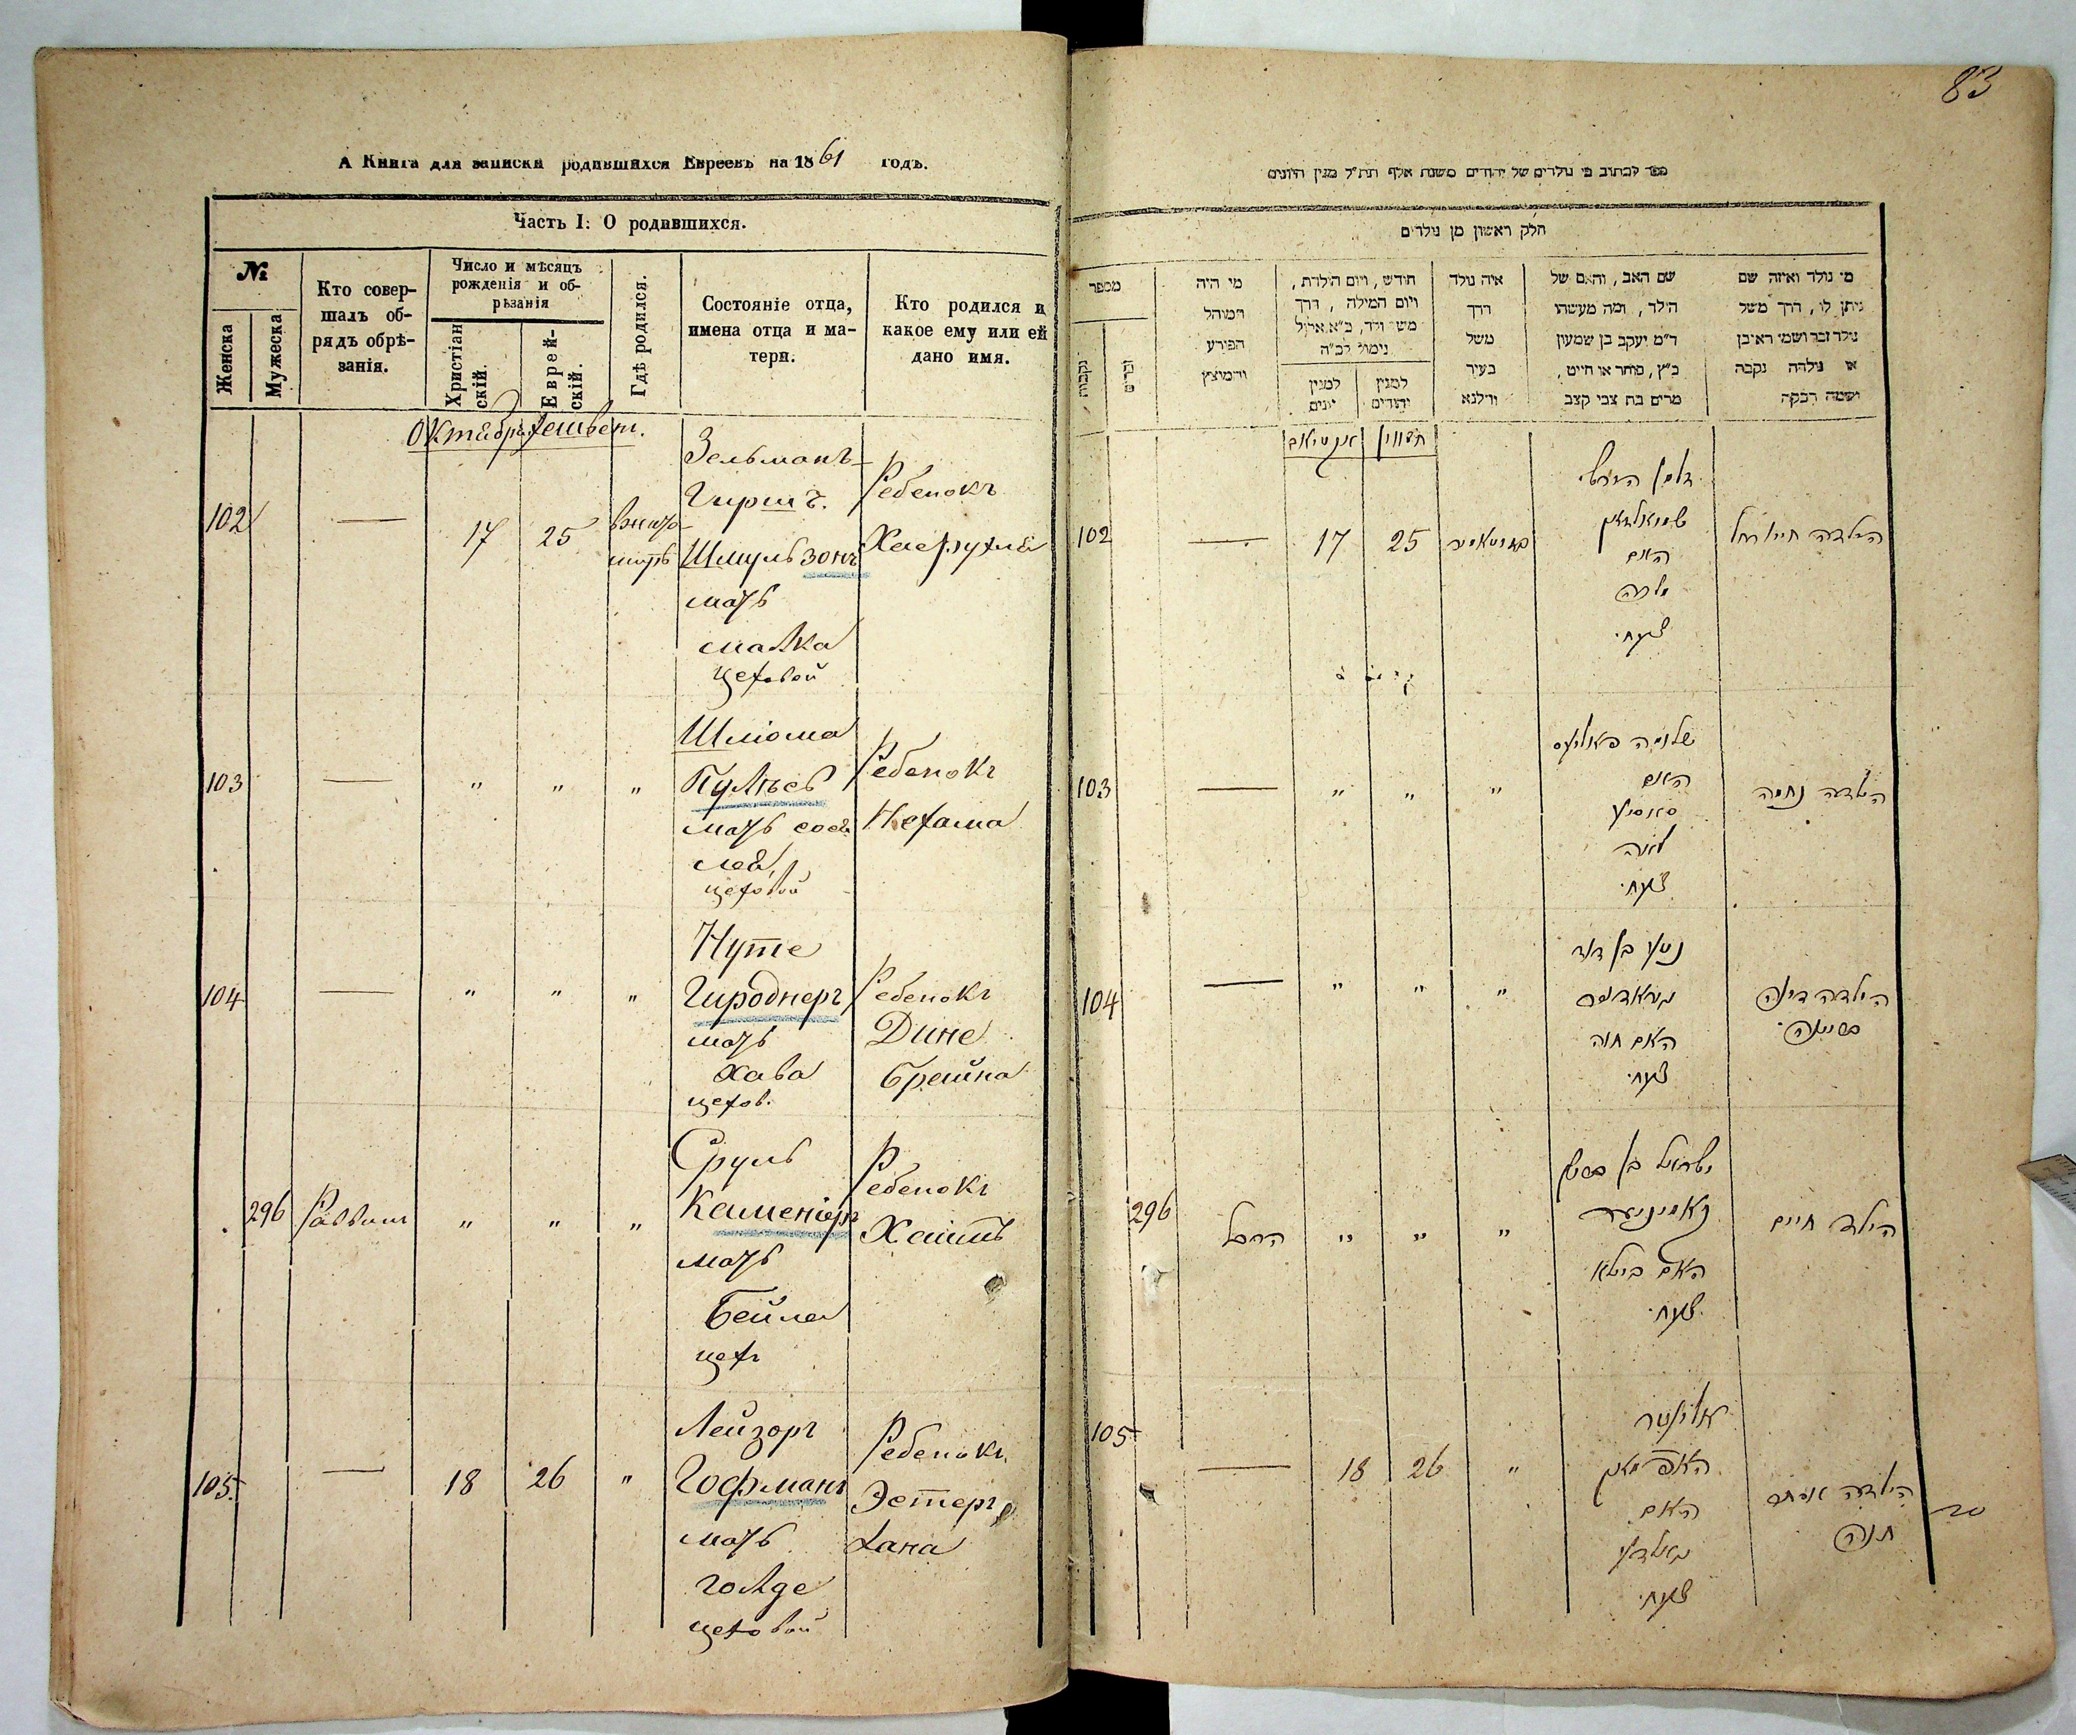 А Книга для записки родившихся Евреевъ на 1861 годъ.
Часть I: О родившихся.
№
Женска
Мужеска
Кто совер-
шалъ об-
рядъ обрѣ-
занія.
Число и мѣсяцъ
рожденія и об-
рѣзанія
Христіан
скій.
Еврей-
скій.
Гдѣ родился.
Состояніе отца,
имена отца и ма-
тери.
Кто родился и
какое ему или ей
дано имя.
Октябрь Хешвет.
102
—
17
25
Зельманъ
Гиршъ.
Шмульзонъ
мать
малка
цеховой
Ребенокъ
103
—
"
"
"
Шліома
Пулѣсъ
мать
цеховой
Ребенокъ
Нехама
104
—
"
"
"
Нуте
Гироднеръ
мать
Хава
цехов.
Ребенокъ
Дине
Брайна
296
Раввинъ
"
"
"
Сруль
Каменіеръ
мать
Бейла
цехъ
Ребенокъ
Хаимъ
105
—
18
26
"
Лейзоръ
Гофманъ
мать
голде
цеховой
Ребенокъ
Эстеръ
Хана
83
ספר לכתוב בו נולדים של יהודים משנת אלף תת"ל מנין היונים
חלק ראשון מן נולדים
מספר
נקבות
זכרים
מי היה
המוהל
הפורע
והמוצץ
חודש, ויום הולדת,
ויום המילה, דרך
משל ולד, כ"א אלול
נימול לכ"ה
למנין
יונים
למנין
יהודים
איה נולד
דרך
משל
בעיר
ווילנא
שם האב, והאם של
הילד, ומה מעשהו
ד"מ יעקב בן שמעון
כ"ץ, סוחר או חייט,
מרים בת צבי קצב
מי נולד ואיזה שם
ניתן לו, דרך משל
נולד זכר ושמו ראובן
או נולדה נקבה
ושמה רבקה
אקטיאב חשוון
102
—
17
25
זלמן הירש
שמואלזאן
האם
מלכה
הילדה חיי רחל
103
—
"
"
"
שלומה פאוליעס
האם
לאה
הילדה נחמה
104
—
"
"
"
נטע בן דוד
גראדנער
האם חוה
הילדה דינה
בריינה
296
הרב
"
"
"
ישראל בן
קאמיניער
האם ביילא
הילד חיים
105
—
18
26
"
אליעזר
האפמאן
האם
גאלדע
הילדה אסתר
חנה